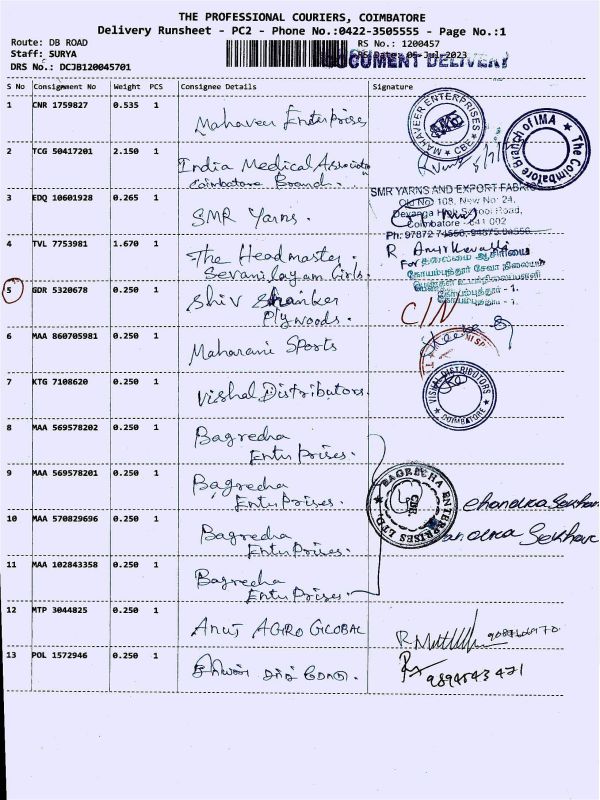 THE PROFESSIONAL COURIERS, COIMBATORE
Delivery Runsheet - PC2 - Phone No.:0422-3505555 - Page No.:1
Route: DB ROAD
RS No.: 1200457
Staff: SURYA
RS Date: 05-Jul-2023
DOCUMENT DELIVERY
DRS No.: DCJB120045701
S No Consignment No Weight PCS Consignee Details Signature
1 CNR 1759827 0.535 1 Mahaveer Enterprises
MAHAVEER ENTERPRISES CBE
2 TCG 50417201 2.150 1 India Medical Association
Coimbatore Branch.
The Coimbatore Branch of IMA
3 EDQ 10601928 0.265 1 SMR Yarns.
SMR YARNS AND EXPORT FABRICS
Old No: 108, New No: 24,
Devanga High School Road,
Coimbatore - 641 002
4 TVL 7753981 1.670 1 The Headmaster.
Sevanilayam Girls.
For தலைமை ஆசிரியை
கோயம்புத்தூர் சேவா நிலையம்
கோயம்புத்தூர் - 1.
5 GDR 5320678 0.250 1 Shiv Shanker
Plywoods.
C/N
6 MAA 860705981 0.250 1 Maharani Sports
7 KTG 7108620 0.250 1 Vishal Distributors.
VISHAL DISTRIBUTORS COIMBATORE
8 MAA 569578202 0.250 1 Bagrecha
Enterprises.
9 MAA 569578201 0.250 1 Bagrecha
Enterprises.
BAGRECHA ENTERPRISES LTD. CBE.
chandra Sekhar
10 MAA 570829696 0.250 1 Bagrecha
Enterprises.
Sekhar
11 MAA 102843358 0.250 1 Bagrecha
Enterprises.
12 MTP 3044825 0.250 1 Anuj AGRO GLOBAL
13 POL 1572946 0.250 1